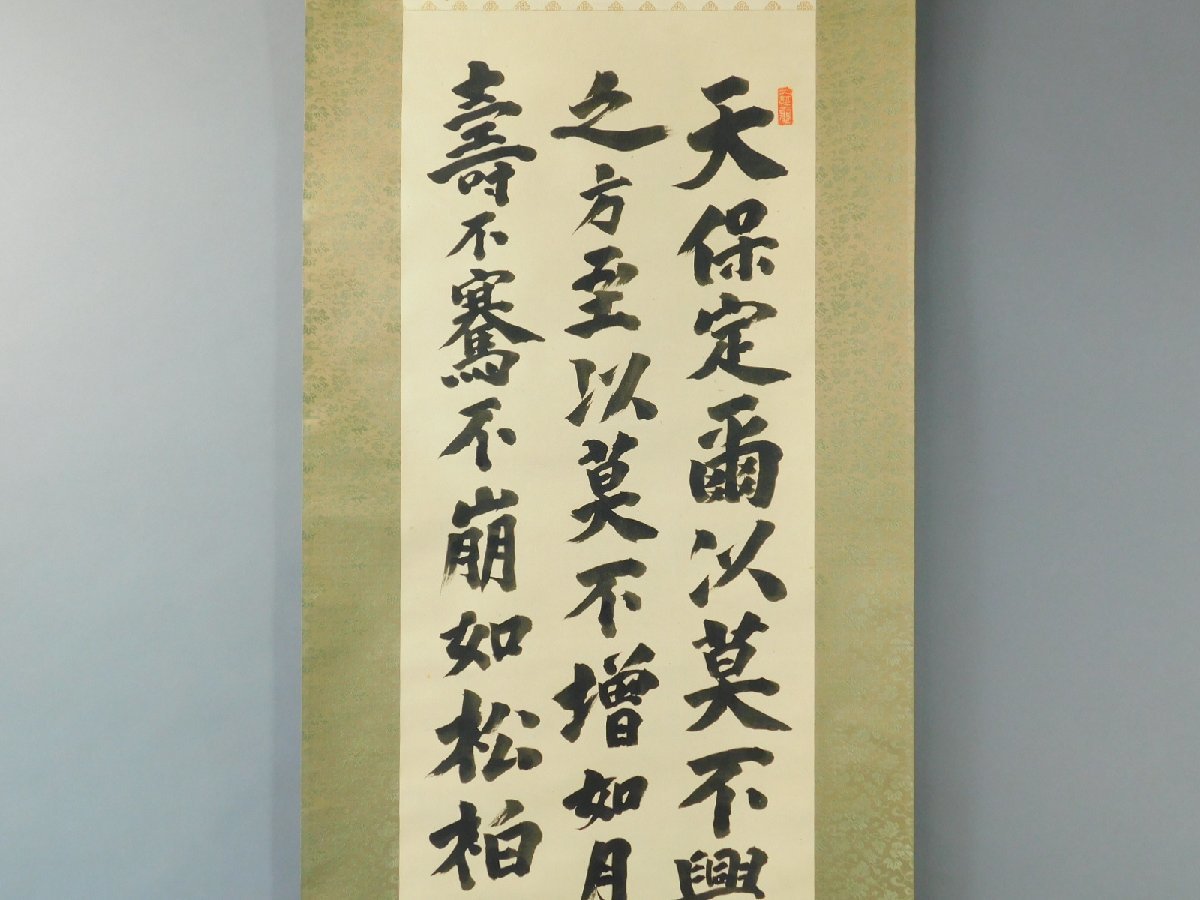 天保定爾以莫不興
之方至以莫不增如月
壽不騫不崩如松柏